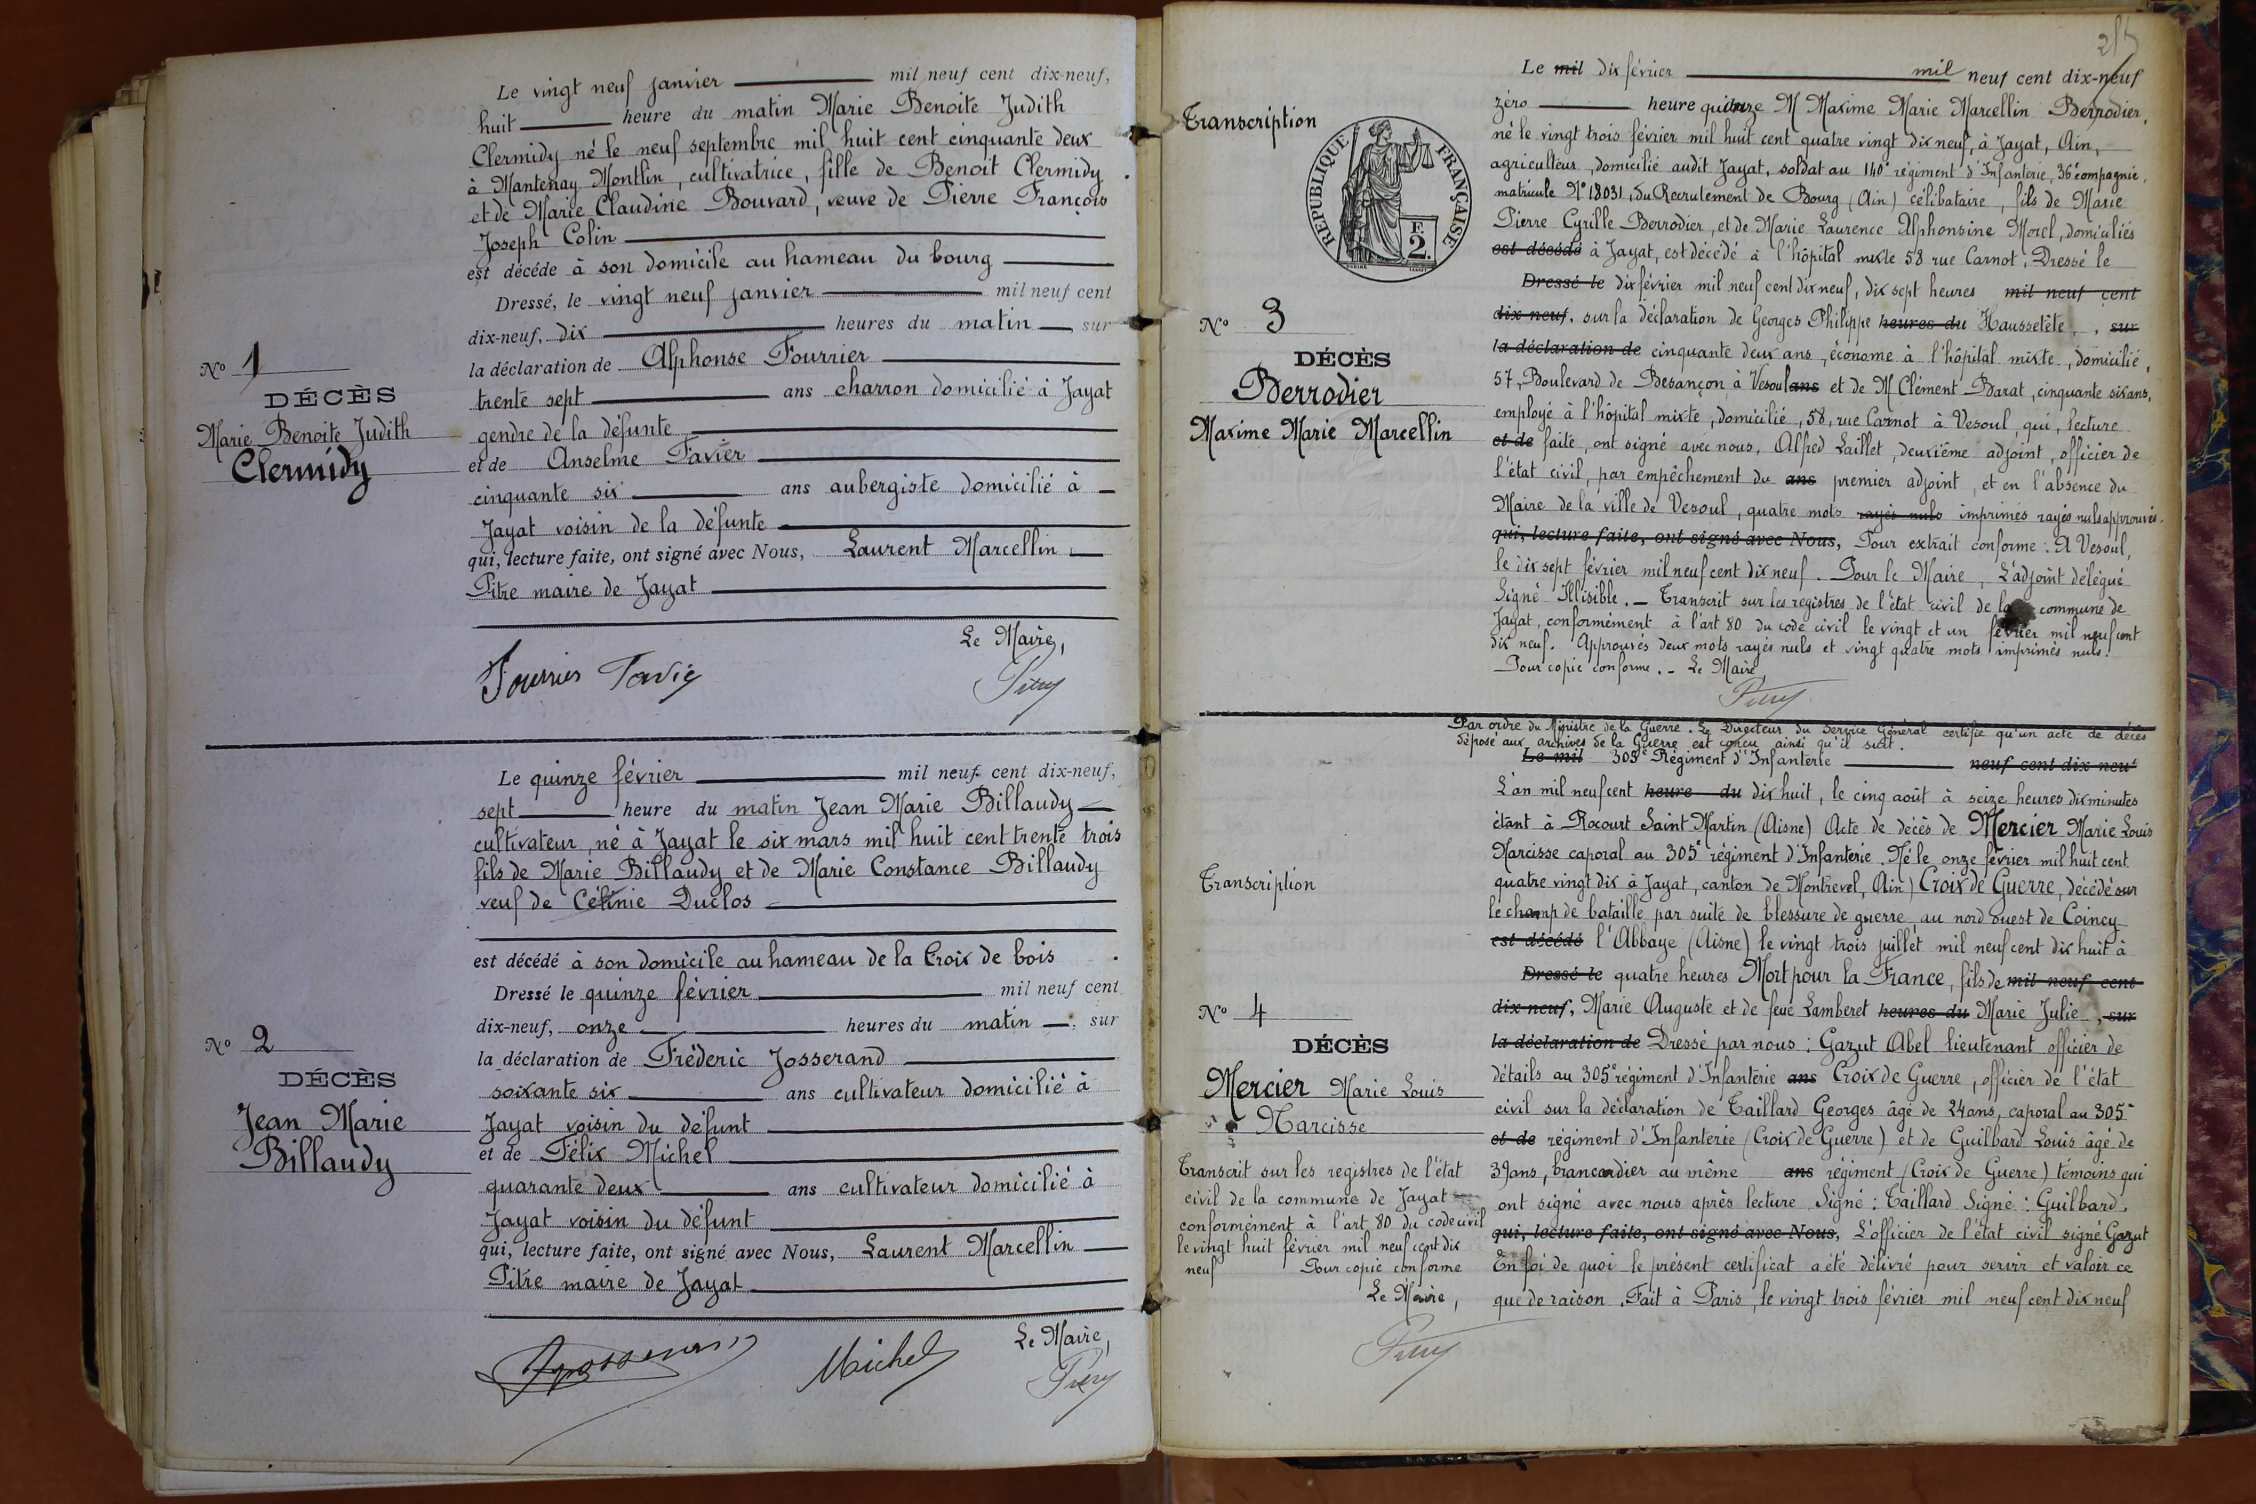 Le vingt neuf janvier mil neuf cent dix-neuf,
huit heure du matin Marie Benoite Judith
Clermidy né le neuf septembre mil huit cent cinquante deux
à Mantenay Montlin, cultivatrice, fille de Benoit Clermidy
et de Marie Claudine Bouvard, veuve de Pierre François
Joseph Colin
est décéde à son domicile au hameau du bourg
Dressé, le vingt neuf janvier mil neuf cent
dix-neuf, dix heures du matin, sur
la déclaration de Alphonse Fourrier
trente sept ans charron domicilié à Jayat
gendre de la défunte
et de Anselme Favier
cinquante six ans aubergiste domicilié à
Jayat voisin de la défunte
qui, lecture faite, ont signé avec Nous, Laurent Marcellin
Pitre maire de Jayat
Le Maire,
Fourrier
No 1
DÉCÈS
Marie Benoite Judith
Clermidy
Le quinze février mil neuf cent dix-neuf,
sept heure du matin Jean Marie Billaudy
cultivateur, né à Jayat le six mars mil huit cent trente trois
fils de Marie Billaudy et de Marie Constance Billaudy
veuf de Célinie Duclos
est décédé à son domicile au hameau de la Croix de bois
Dressé le quinze février mil neuf cent
dix-neuf, onze heures du matin, sur
la déclaration de Fréderic Josserand
soixante six ans cultivateur domicilié à
Jayat voisin du défunt
et de Félix Michel
quarante deux ans cultivateur domicilié à
Jayat voisin du défunt
qui, lecture faite, ont signé avec Nous, Laurent Marcellin
Pitre maire de Jayat
Le Maire,
Michel
No 2
DÉCÈS
Jean Marie
Billaudy
Transcription
RÉPUBLIQUE FRANÇAISE
F.
2.
No 3
DÉCÈS
Berrodier
Maxime Marie Marcellin
Le mil dix février mil neuf cent dix-neuf
zéro heure quinze M Maxime Marie Marcellin Berrodier,
né le vingt trois février mil huit cent quatre vingt dix neuf, à Jayat, Ain,
agriculteur, domicilié audit Jayat, soldat au 140e régiment d'Infanterie, 36e compagnie,
matricule No 18031, du Recrutement de Bourg (Ain) célibataire, fils de Marie
Pierre Cyrille Berrodier, et de Marie Laurence Alphonsine Morel, domiciliés
est décédé à Jayat, est décédé à l'hôpital mixte 58 rue Carnot. Dressé le
Dressé le dix février mil neuf cent dix neuf, dix sept heures mil neuf cent
dix-neuf, sur la déclaration de Georges Philippe heures du Haussetête, sur
la déclaration de cinquante deux ans, économe à l'hôpital mixte, domicilié,
57, Boulevard de Besançon à Vesoul ans et de M Clément Barat, cinquante six ans,
employé à l'hôpital mixte, domicilié, 58, rue Carnot à Vesoul, qui, lecture
et de faite, ont signé avec nous, Alfred Laillet, deuxième adjoint, officier de
l'état civil, par empêchement du ans premier adjoint, et en l'absence du
Maire de la ville de Vesoul, quatre mots rayés nuls imprimés rayés nuls approuvés.
qui, lecture faite, ont signé avec Nous, Pour extrait conforme. A Vesoul,
le dix sept février mil neuf cent dix neuf. Pour le Maire, L'adjoint délégué
Signé Illisible. - Transcrit sur les registres de l'état civil de la commune de
Jayat, conformément à l'art 80 du code civil le vingt et un février mil neuf cent
dix neuf. Approuvés deux mots rayés nuls et vingt quatre mots imprimés nuls.
Pour copie conforme. - Le Maire,
Par ordre du Ministre de la Guerre. Le Directeur du Service Général certifie qu'un acte de décès
déposé aux archives de la Guerre est conçu ainsi qu'il suit.
Le mil 305e Régiment d'Infanterie neuf cent dix neuf
L'an mil neuf cent heure du dix huit, le cinq août à seize heures dix minutes
étant à Rocourt Saint Martin (Aisne) Acte de décès de Mercier Marie Louis
Narcisse caporal au 305e régiment d'Infanterie. Né le onze février mil huit cent
quatre vingt dix à Jayat, canton de Montrevel, Ain) Croix de Guerre, décédé sur
le champ de bataille par suite de blessure de guerre au nord ouest de Coincy
est décédé l'Abbaye (Aisne) le vingt trois juillet mil neuf cent dix huit à
Dressé le quatre heures Mort pour la France, fils de mil neuf cent
dix-neuf, Marie Auguste et de feue Lamberet heures du Marie Julie, sur
la déclaration de Dressé par nous : Gazut Abel lieutenant officier de
détails au 305e régiment d'Infanterie ans Croix de Guerre, officier de l'état
civil sur la déclaration de Taillard Georges âgé de 24 ans, caporal au 305e
et de régiment d'Infanterie (Croix de Guerre) et de Guilbard Louis âgé de
39 ans, brancardier au même ans régiment (Croix de Guerre) témoins qui
ont signé avec nous après lecture Signé : Taillard Signé : Guilbard,
qui, lecture faite, ont signé avec Nous, L'officier de l'état civil signé Gazut
En foi de quoi le présent certificat a été délivré pour servir et valoir ce
que de raison. Fait à Paris, le vingt trois février mil neuf cent dix neuf
Transcription
No 4
DÉCÈS
Mercier Marie Louis
Narcisse
Transcrit sur les registres de l'état
civil de la commune de Jayat
conformément à l'art 80 du code civil
le vingt huit février mil neuf cent dix
neuf Pour copie conforme
Le Maire,